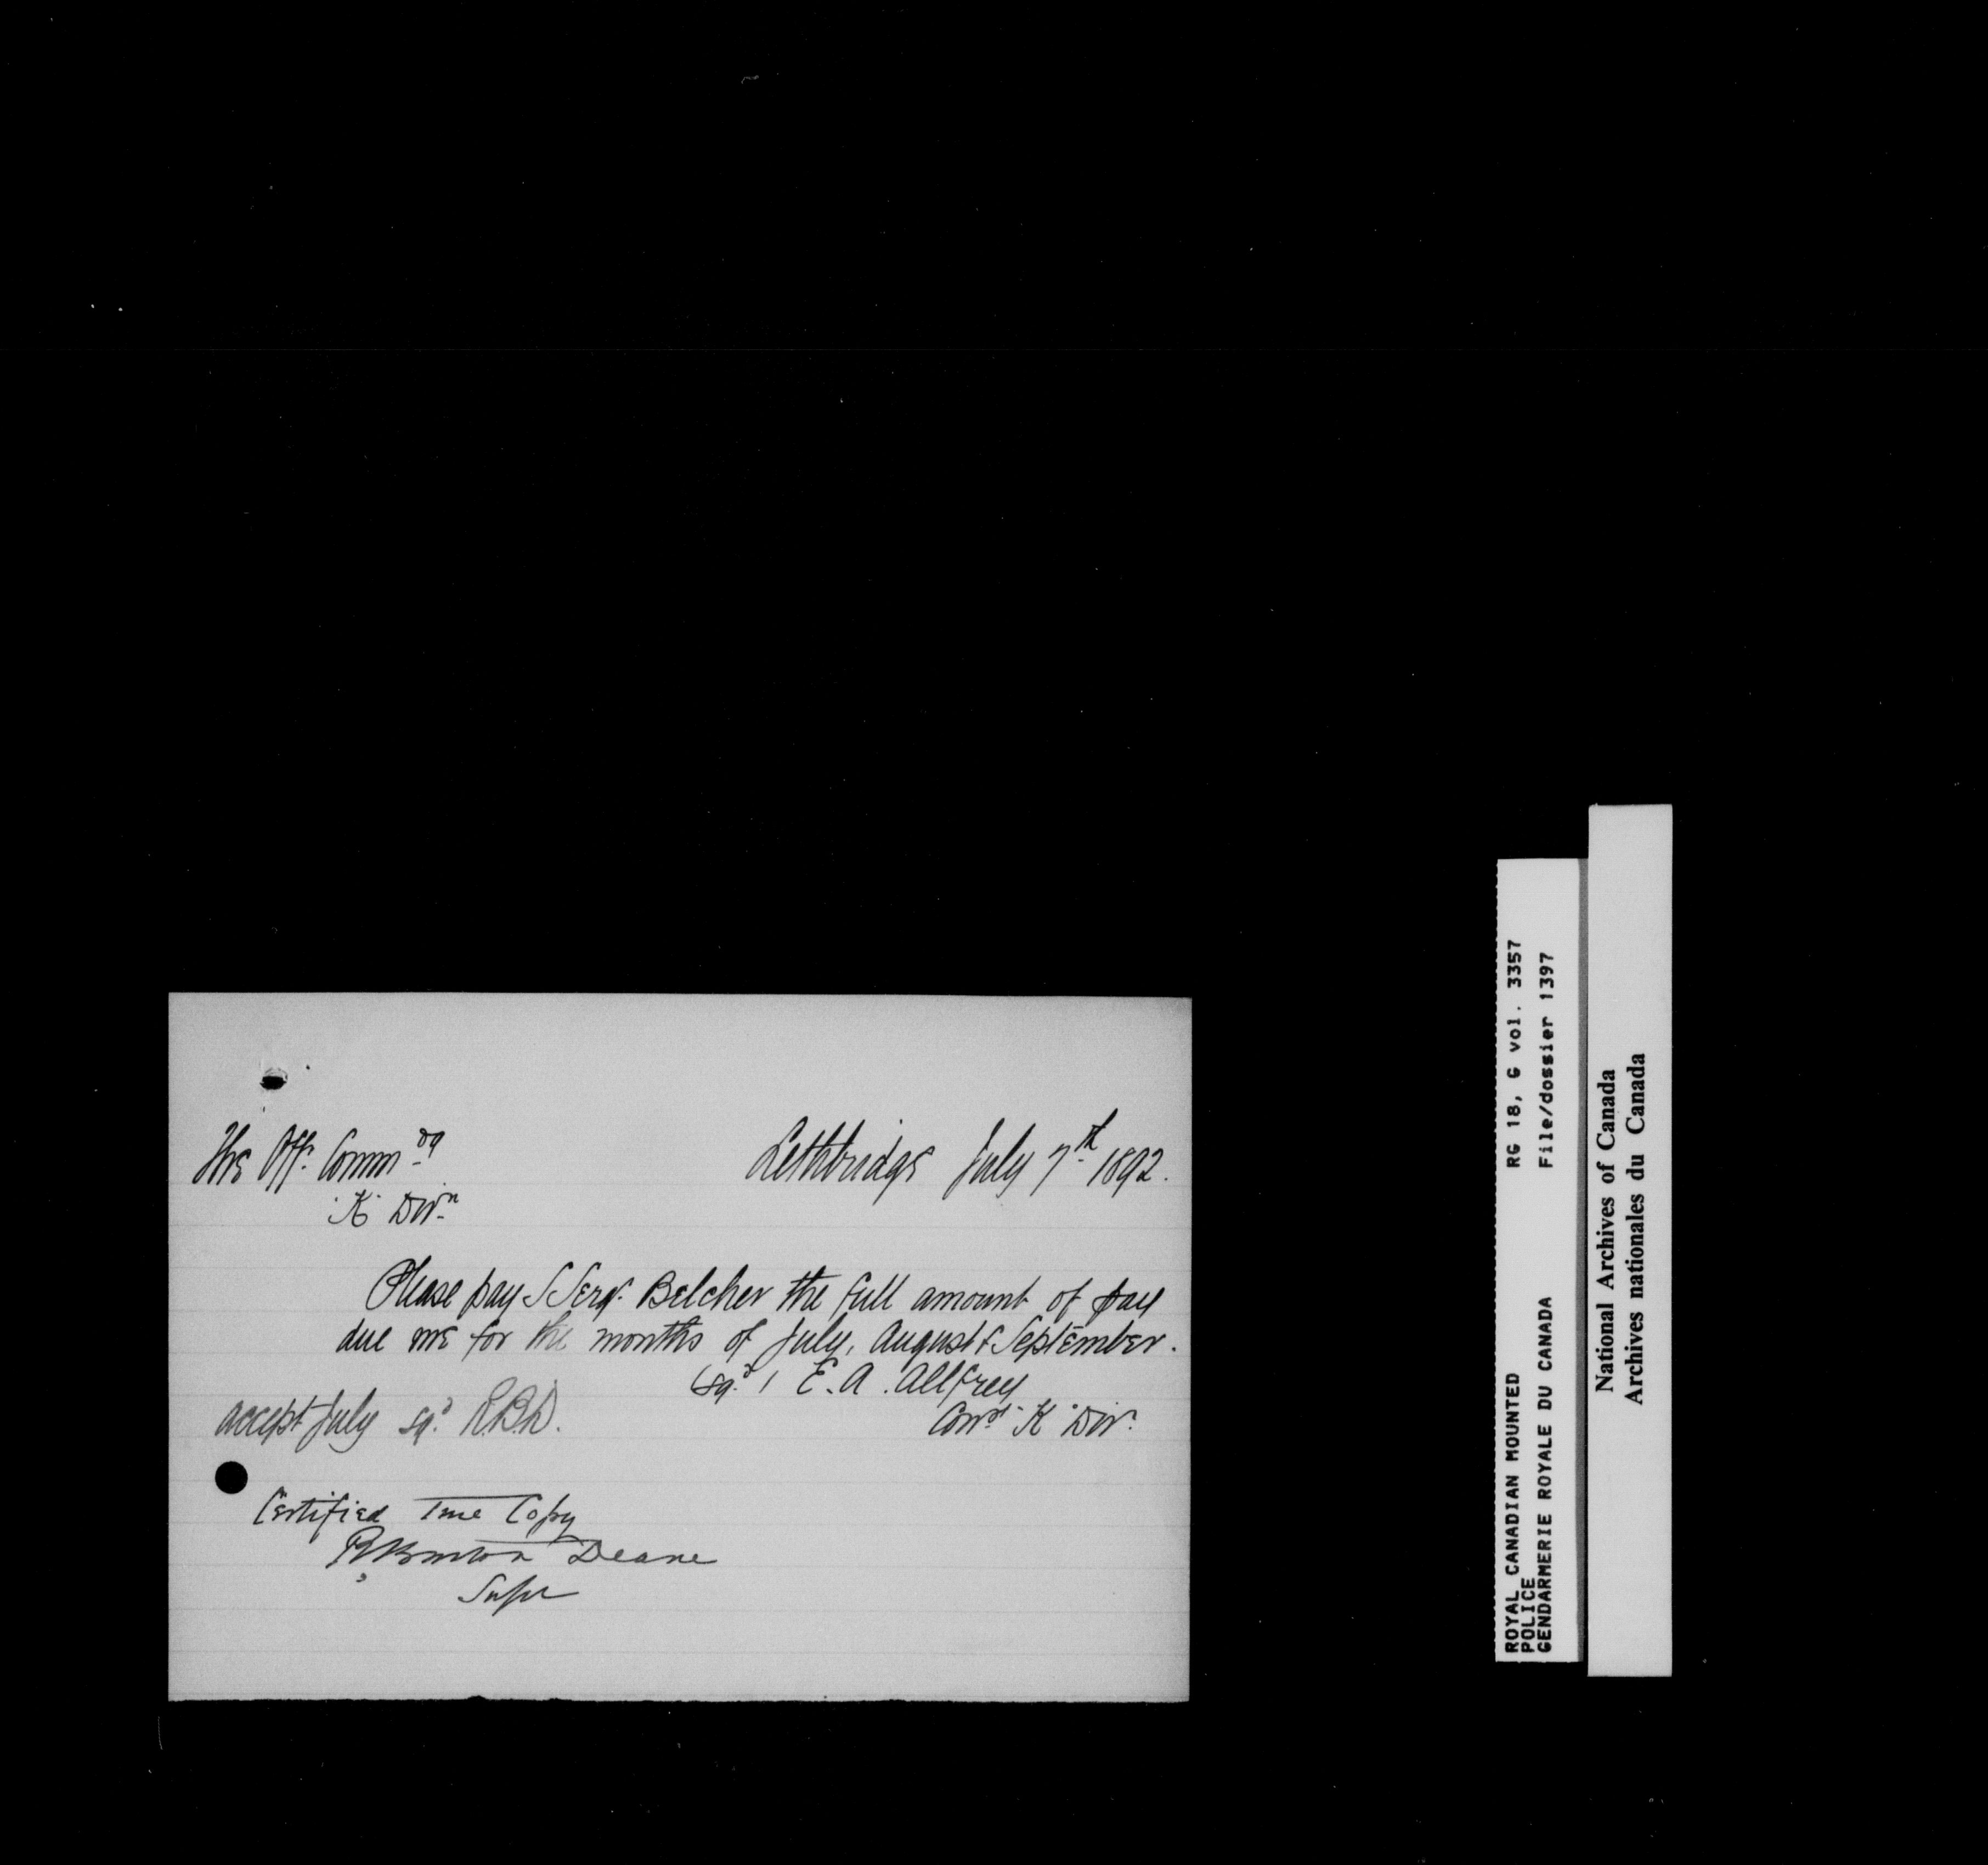 The Off. Commdg
Lethbridge July 7th 1892.
"K" Divn
Please pay S Sergt. Belcher the full amount of pay
due me for the months of July, August & September.
(sgd) E. A. Allfrey
Const. "K" Div.
accept July sgd. R.B.D.
Certified True Copy
R Burton Deane
Supt
ROYAL CANADIAN MOUNTED RG 18, G vol. 3357
POLICE
GENDARMERIE ROYALE DU CANADA File/dossier 1397
National Archives of Canada
Archives nationales du Canada